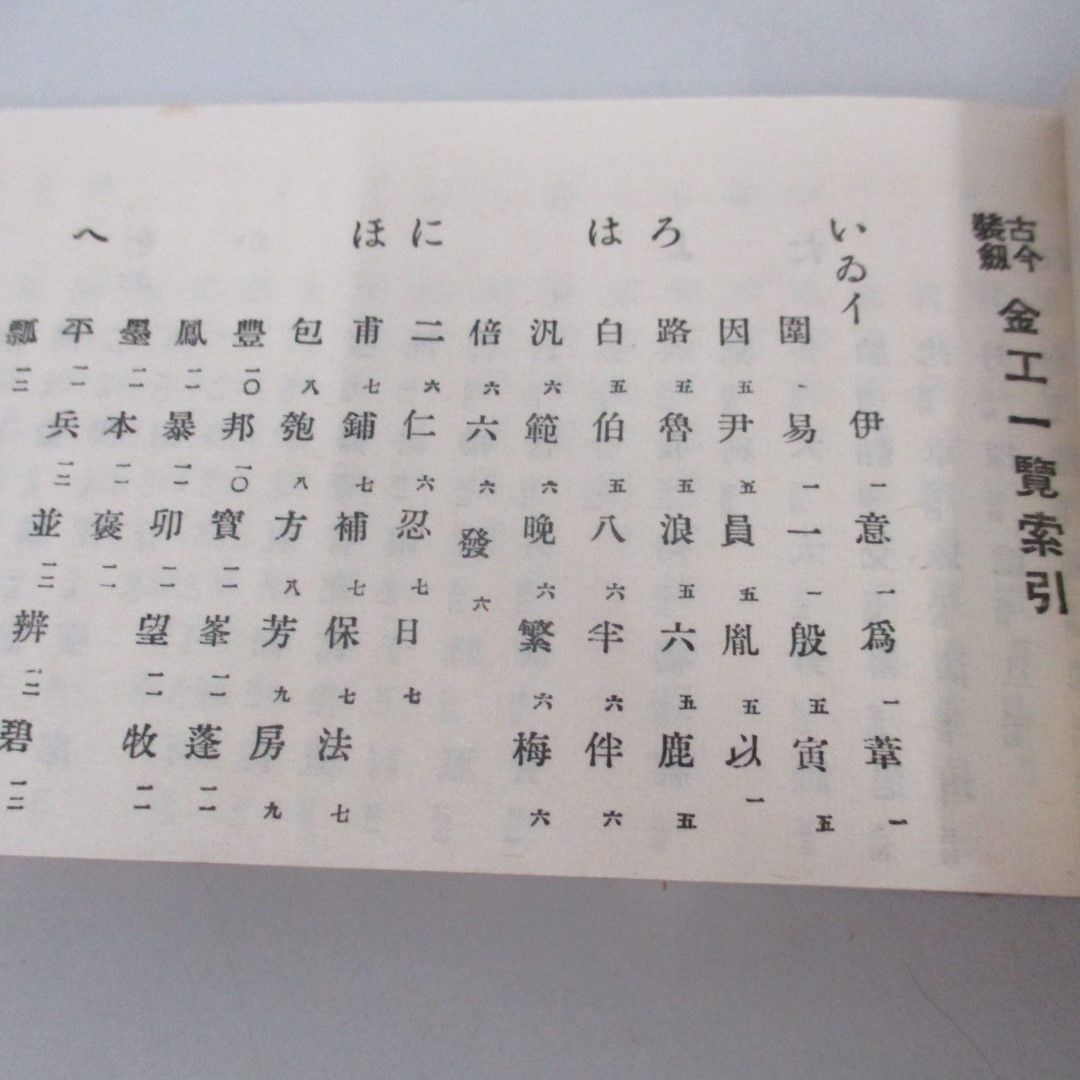 古今裝釼 金工一覽索引
いゐイ 伊 一 意 一 爲 一 葦 一
圍 一 易 一 一 一 殷 五 寅 五
因 五 尹 五 員 五 胤 五 以 一
ろ 路 五 魯 五 浪 五 六 五 鹿 五
は 白 五 伯 五 八 五 半 六 伴 六
汎 六 範 六 晚 六 繁 六 梅 六
倍 六 六 六 發 六
に 二 六 仁 六 忍 七 日 七
ほ 甫 七 鋪 七 補 七 保 七 法 七
包 八 匏 八 方 八 芳 九 房 九
豐 一〇 邦 一〇 寶 一一 峯 一一 蓬 一一
鳳 一一 暴 一一 卯 一一 望 一一 牧 一一
墨 一一 本 一一 褒 一一
へ 平 一一 兵 一二 並 一二 辨 一二 碧 一二
瓢 一二